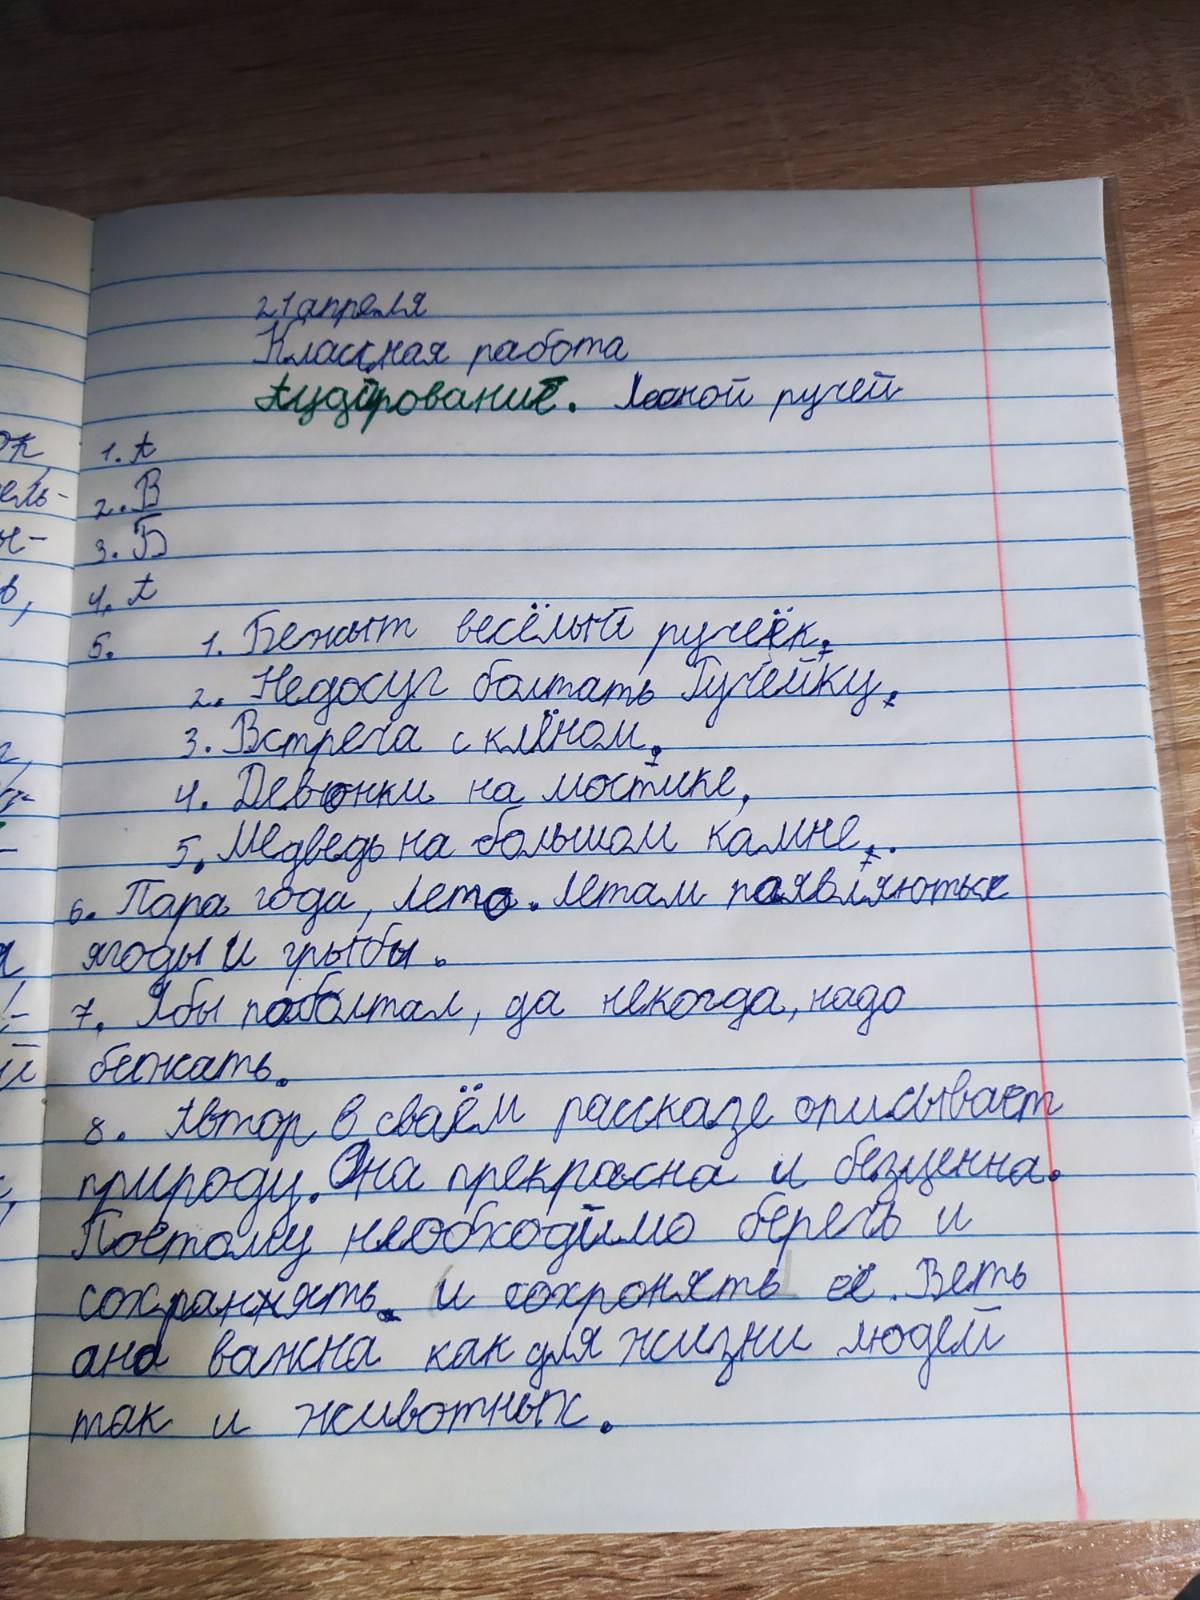 21 апреля
Классная работа
Аудирование. Лесной ручей
1. А
2. В
3. Б
4. А
5. 1. Бежыт весёлый ручеёк.
2. Недосуг болтать Ручейку.
3. Встреча с клёном.
4. Девчонки на мостике,
5. Медведь на большом камне.
6. Пара года, лето. Летам паявляються
ягоды и грыбы.
7. Ябы поболтал, да некогда, надо
бежать.
8. Автор в сваём рассказе описывает
природу. Она прекрасна и безценна.
Поетому необходимо беречь и
сохранять. и сохронять её. Веть
ана важна как для жизни людей
так и животных.